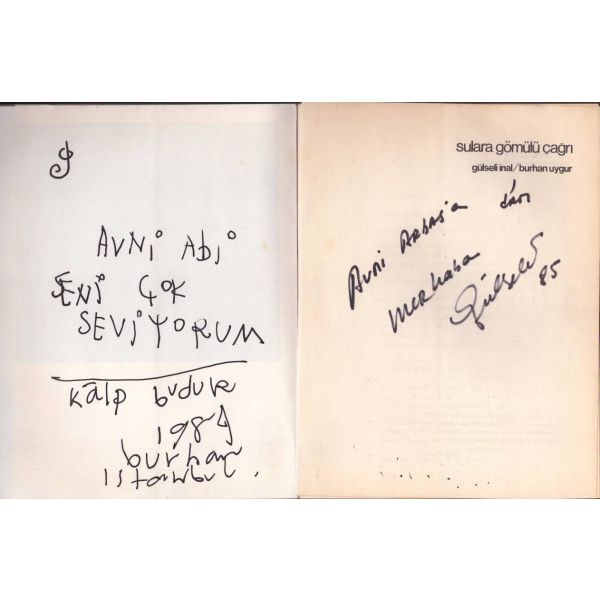 AVNİ ABİ
SENİ ÇOK
SEVİYORUM
kâlp budur
1984
burhan
istanbul.
sulara gömülü çağrı
gülseli inal/burhan uygur
Avni Arbaş'a
merhaba
Gülseli
85